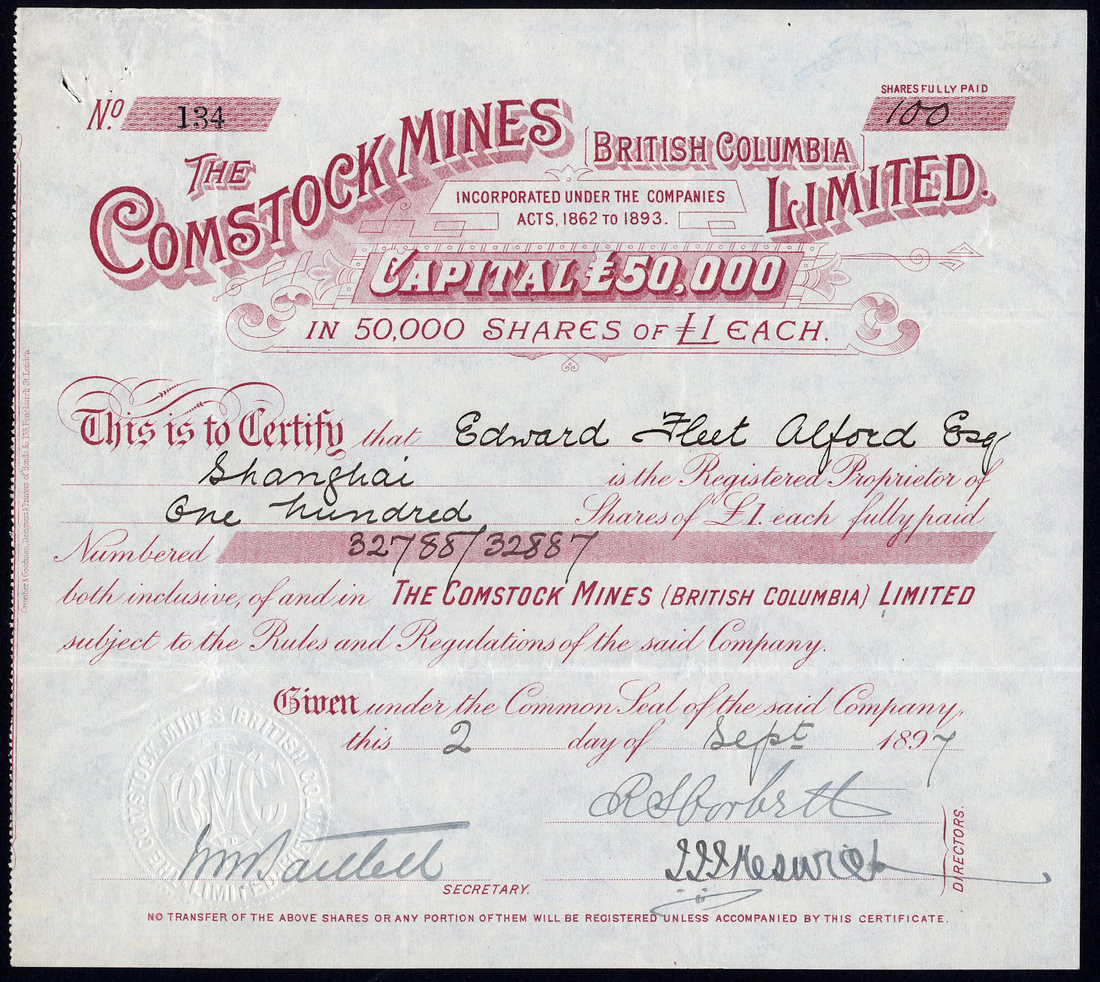 No. 134
SHARES FULLY PAID
100
THE COMSTOCK MINES (BRITISH COLUMBIA) LIMITED.
INCORPORATED UNDER THE COMPANIES
ACTS, 1862 TO 1893.
CAPITAL £50,000
IN 50,000 SHARES OF £1 EACH.
This is to Certify that Edward Fleet Alford Esq
Shanghai is the Registered Proprietor of
One hundred Shares of £1. each fully paid
Numbered 32788/32887
both inclusive, of and in THE COMSTOCK MINES (BRITISH COLUMBIA) LIMITED
subject to the Rules and Regulations of the said Company.
Given under the Common Seal of the said Company,
this 2 day of Sept 1897
R S Corbett
DIRECTORS.
SECRETARY.
NO TRANSFER OF THE ABOVE SHARES OR ANY PORTION OF THEM WILL BE REGISTERED UNLESS ACCOMPANIED BY THIS CERTIFICATE.
THE COMSTOCK MINES (BRITISH COLUMBIA) LIMITED